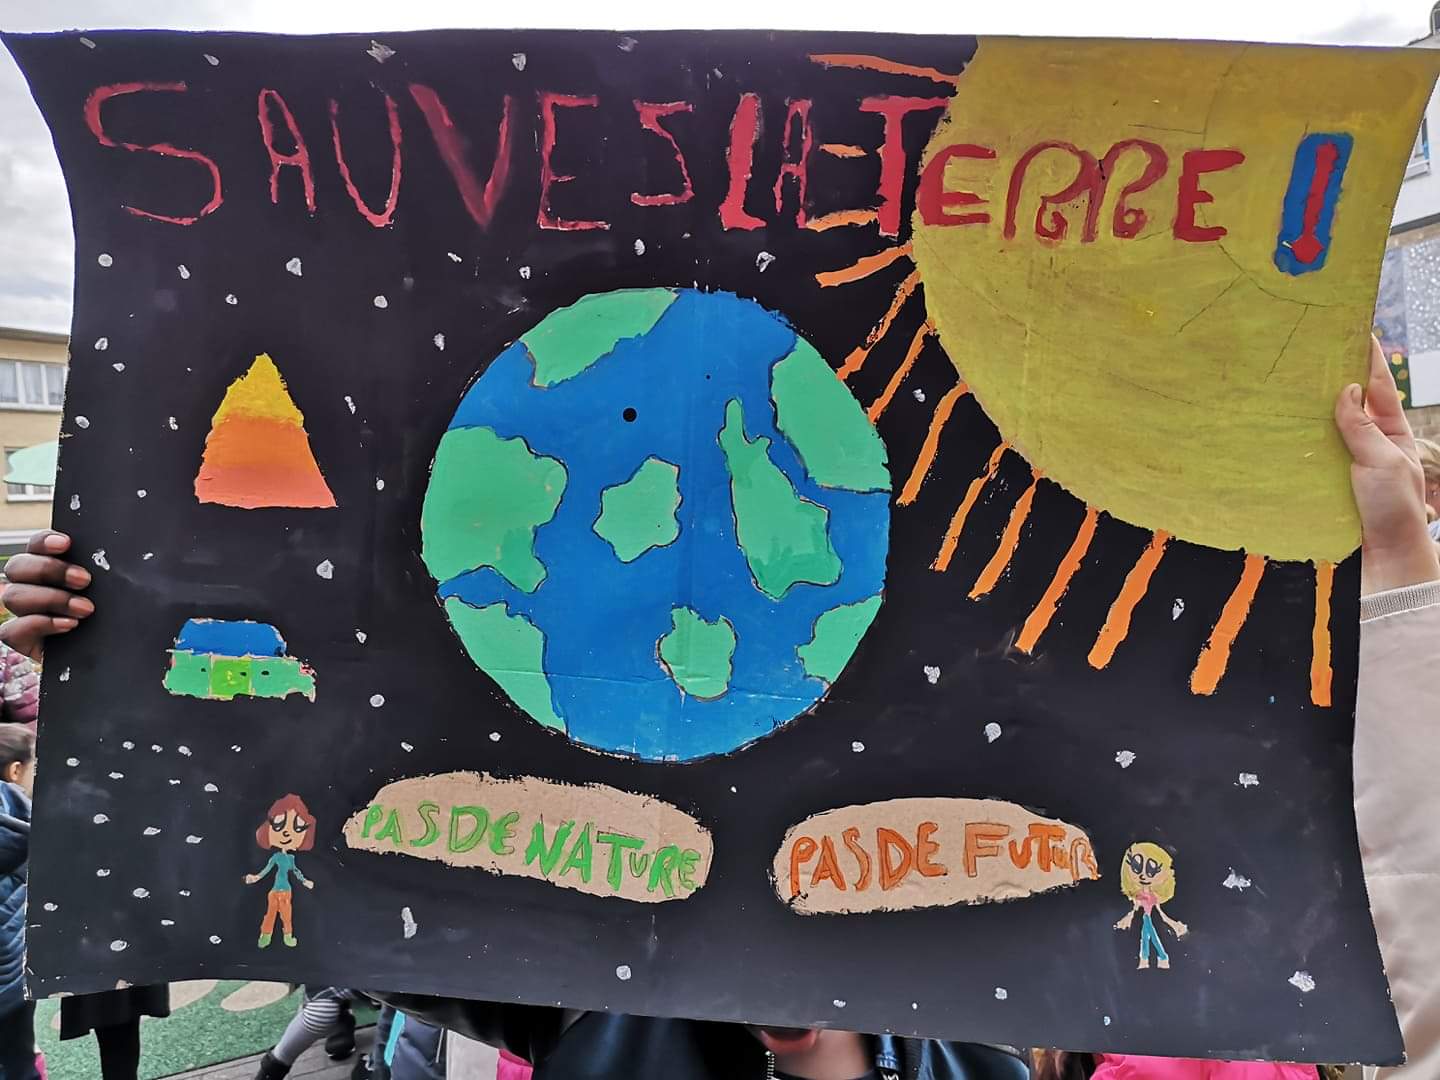 SAUVES LA TERRE !
PAS DE NATURE
PAS DE FUTUR